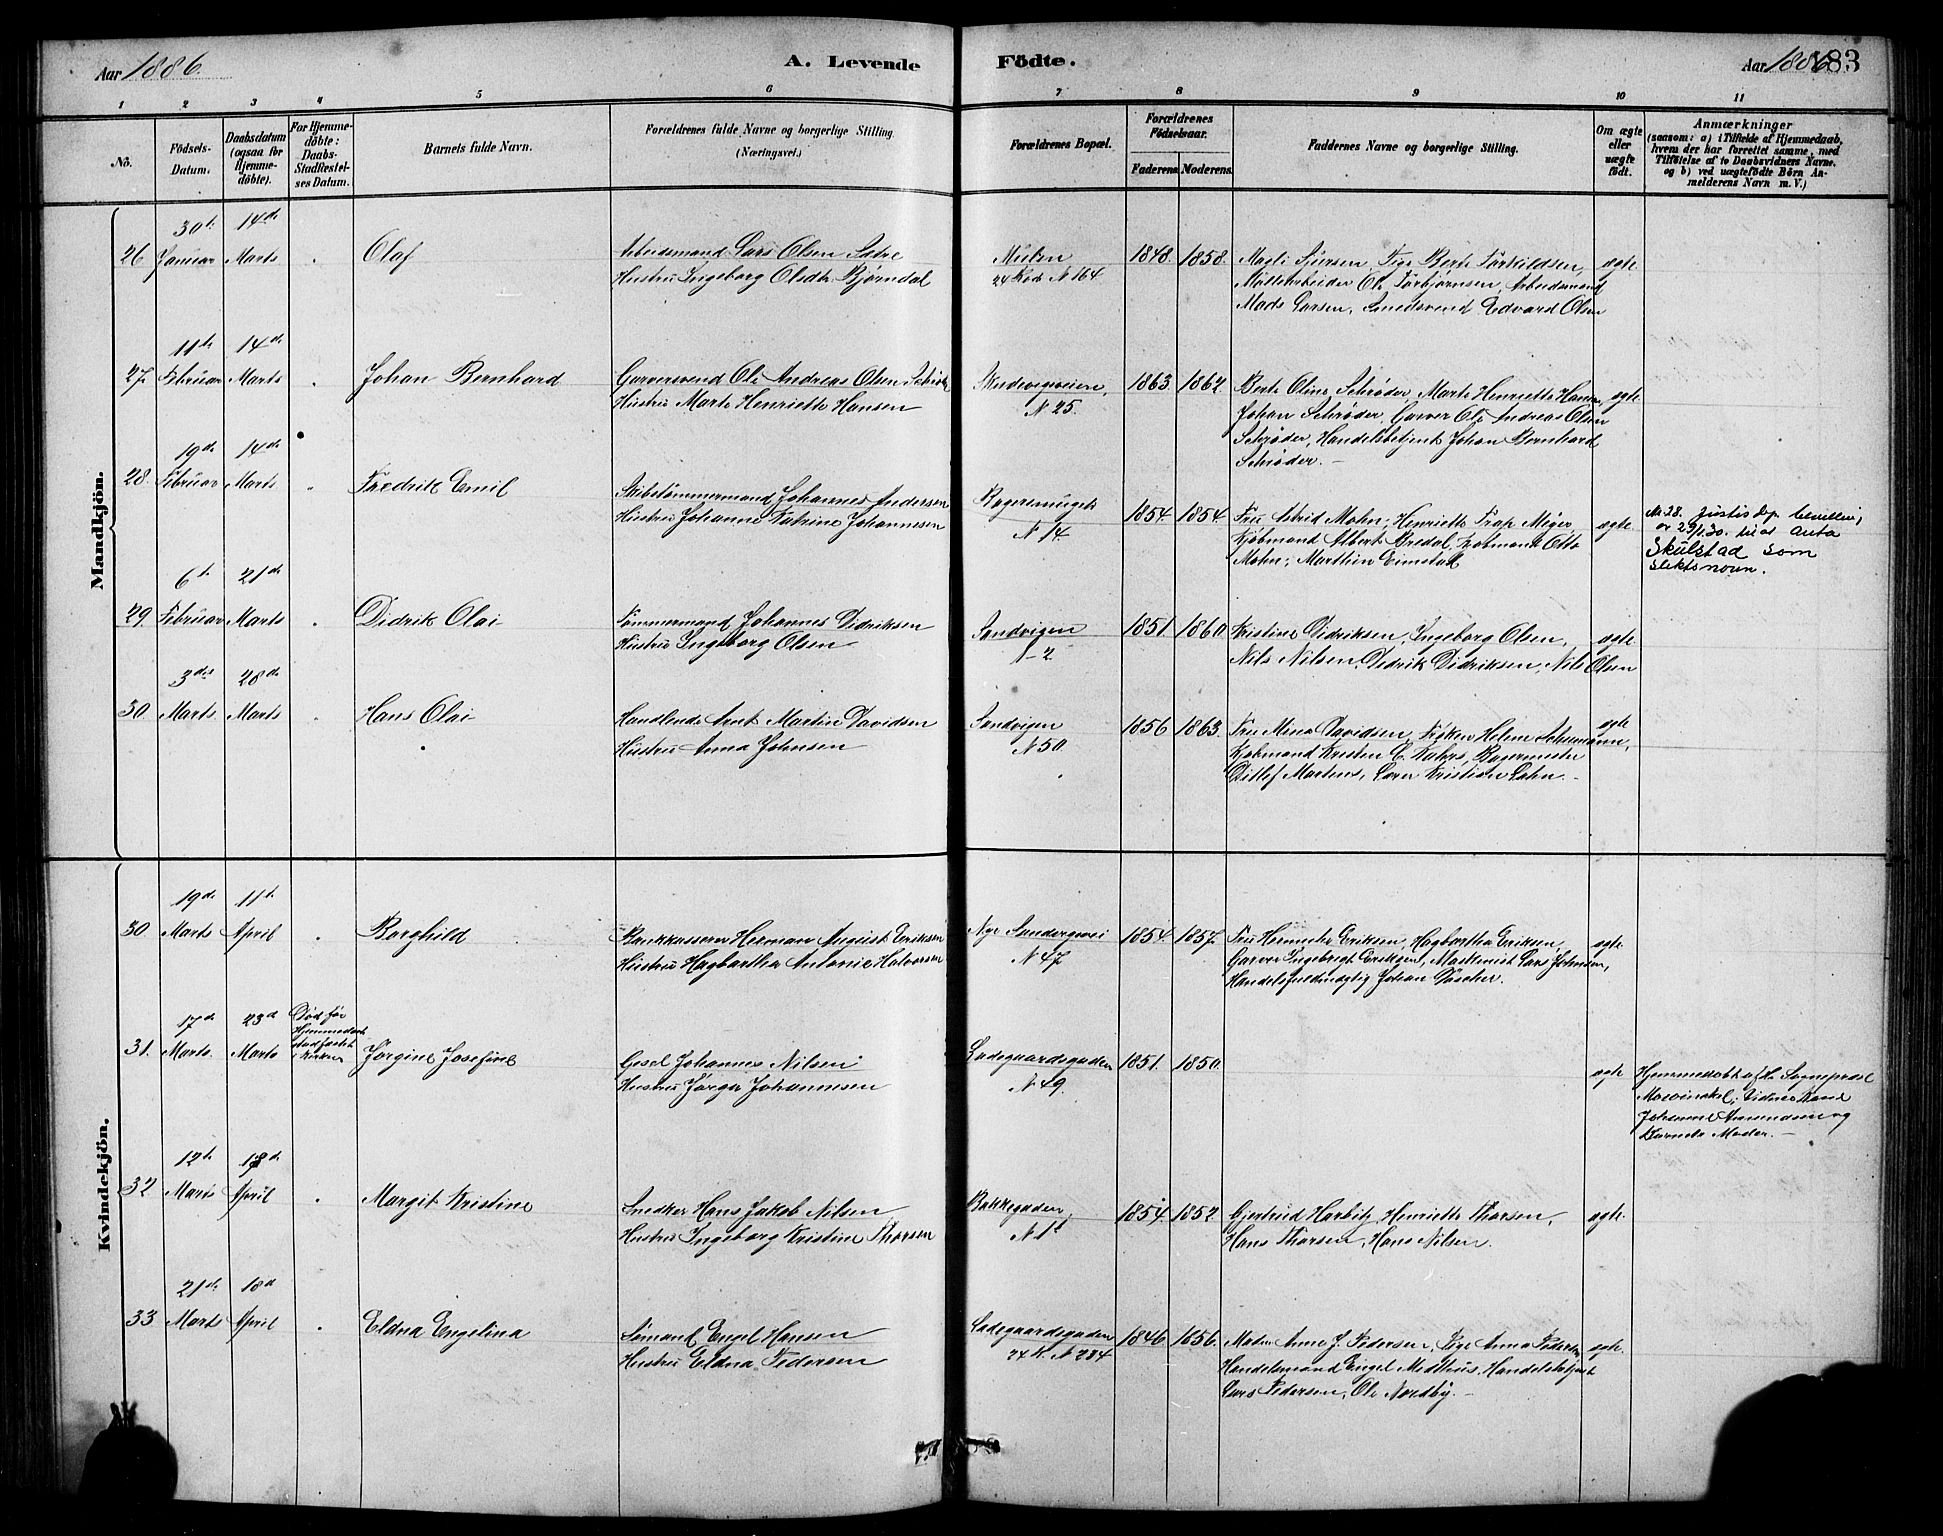 Aar 1886.
A. Levende Födte.
Aar 1886.
183
1 2 3 4 5 6 7 8 9 10 11
No.
Födsels-Datum.
Daabsdatum (ogsaa for Hjemme-döbte).
For Hjemme-döbte: Daabs-Stadfæstel-ses Datum.
Barnets fulde Navn.
Forældrenes fulde Navne og borgerlige Stilling. (Næringsvei.)
Forældrenes Bopæl.
Forældrenes Födselsaar.
Faderens. Moderens.
Faddernes Navne og borgerlige Stilling.
Om ægte eller uægte födt.
Anmærkninger
(saasom: a) i Tilfælde af Hjemmedaab,
hvem der har forrettet samme, med
Tilföielse af to Daabsvidners Navne,
og b) ved uægtefödte Börn An-
melderens Navn m. V.)
Mandkjön.
26 30te Januar 14de Marts Olaf
Arbeidsmand Lars Olsen Sætre
Hustru Ingeborg Olsdtr Bjørndal
24 Rode N 164
1848. 1858.
Pige Berte Torkildsen,
Møllearbeider Ole Torbjørnsen, Arbeidsmand
Mads Larsen, Smedsvend Edvard Olsen
ægte
27 11te Februar 14de Marts Johan Bernhard
Garversvend Ole Andreas Olsen Schrøder
Hustru Marte Henriette Hansen
N 25.
1863. 1862.
Berte Oline Schrøder, Marte Henriette Hansen,
Johan Schrøder, Garver Ole Andreas Olsen
Schrøder, Handelsbetjent Johan Bernhard
Schrøder. –
ægte
28. 19de Februar 14de Marts Fredrik Emil
Skibstømmermand Johannes Andersen
Hustru Johanne Katrine Johannesen
Bagersmuget
N 14.
1854. 1854.
Fru Astrid Mohn, Henriette Trap Meyer,
Kjøbmand Albert Bredal, Kobmand Otto
Mohn, Marthin Eimstad
ægte
Nr 28. Justisdep bevilling
av 29/1.30. til at anta
Skulstad som
slektsnavn.
29. 6te Februar 21de Marts Didrik Olai
Tømmermand Johannes Didriksen
Hustru Ingeborg Olsen
Sandvigen
N 2
1851. 1860
Kristine Didriksen, Ingeborg Olsen,
Nils Nilsen, Didrik Didriksen, Nils Olsen
ægte
30. 3die Marts 28de Marts Hans Olai
Handlende Arnt Martin Davidsen
Hustru Anna Johnsen
Sandvigen
N 50.
1856 1863.
Fru Mina Davidsen, Frøken Helene Schumann,
Kjøbmand Kristen C. Kahrs, Bagermester
Ditlef Martens, Lærer Kristian Lahn. –
ægte
Kvindekjön.
30 19de Marts 11te April Borghild
Bankkasserer Herman August Eriksen
Hustru Hagbartha Antonie Halvorsen
Nye Sandvigsvei
N 47
1854. 1857.
Fru Hermine Eriksen, Hagbartha Eriksen,
Garver Ingebrigt Eriksen, Maskinist Lars Johnsen,
Handelsfuldmægtig Johan Døscher.
ægte
31. 17de Marts. 23d Marts Død før Hjemmedaab stadfæstet i Kirken Jørgine Josefine
Gesel Johannes Nilsen
Hustru Jørga Johannesen
Ladegaardsgaden
N 49.
1851. 1850.
ægte
Hjemmedøbt af Hr Sognepræst
Mowinckel; Vidner Kone
Johanne Amundsen og
Barnets Moder. –
32 12te Marts 18de April Margit Kristine
Snedker Hans Jakob Nilsen
Hustru Ingeborg Kristine Thorsen
Bakkegaden,
N 1
1854. 1852.
Gjertrud Harbitz, Henriette Thorsen,
Hans Thorsen, Hans Nilsen.
ægte.
33 21de Marts 18d April Eldna Engelina
Sømand Engel Hansen
Hustru Eldna Pedersen
Ladegaardsgaden
24 R. N 234
1846. 1856.
Madm Anne J. Pedersen, Pige Anna Pedersen
Handelsmand Engel Midthus, Handelsbetjent
Lars Pedersen, Ole Nordby. –
ægte.